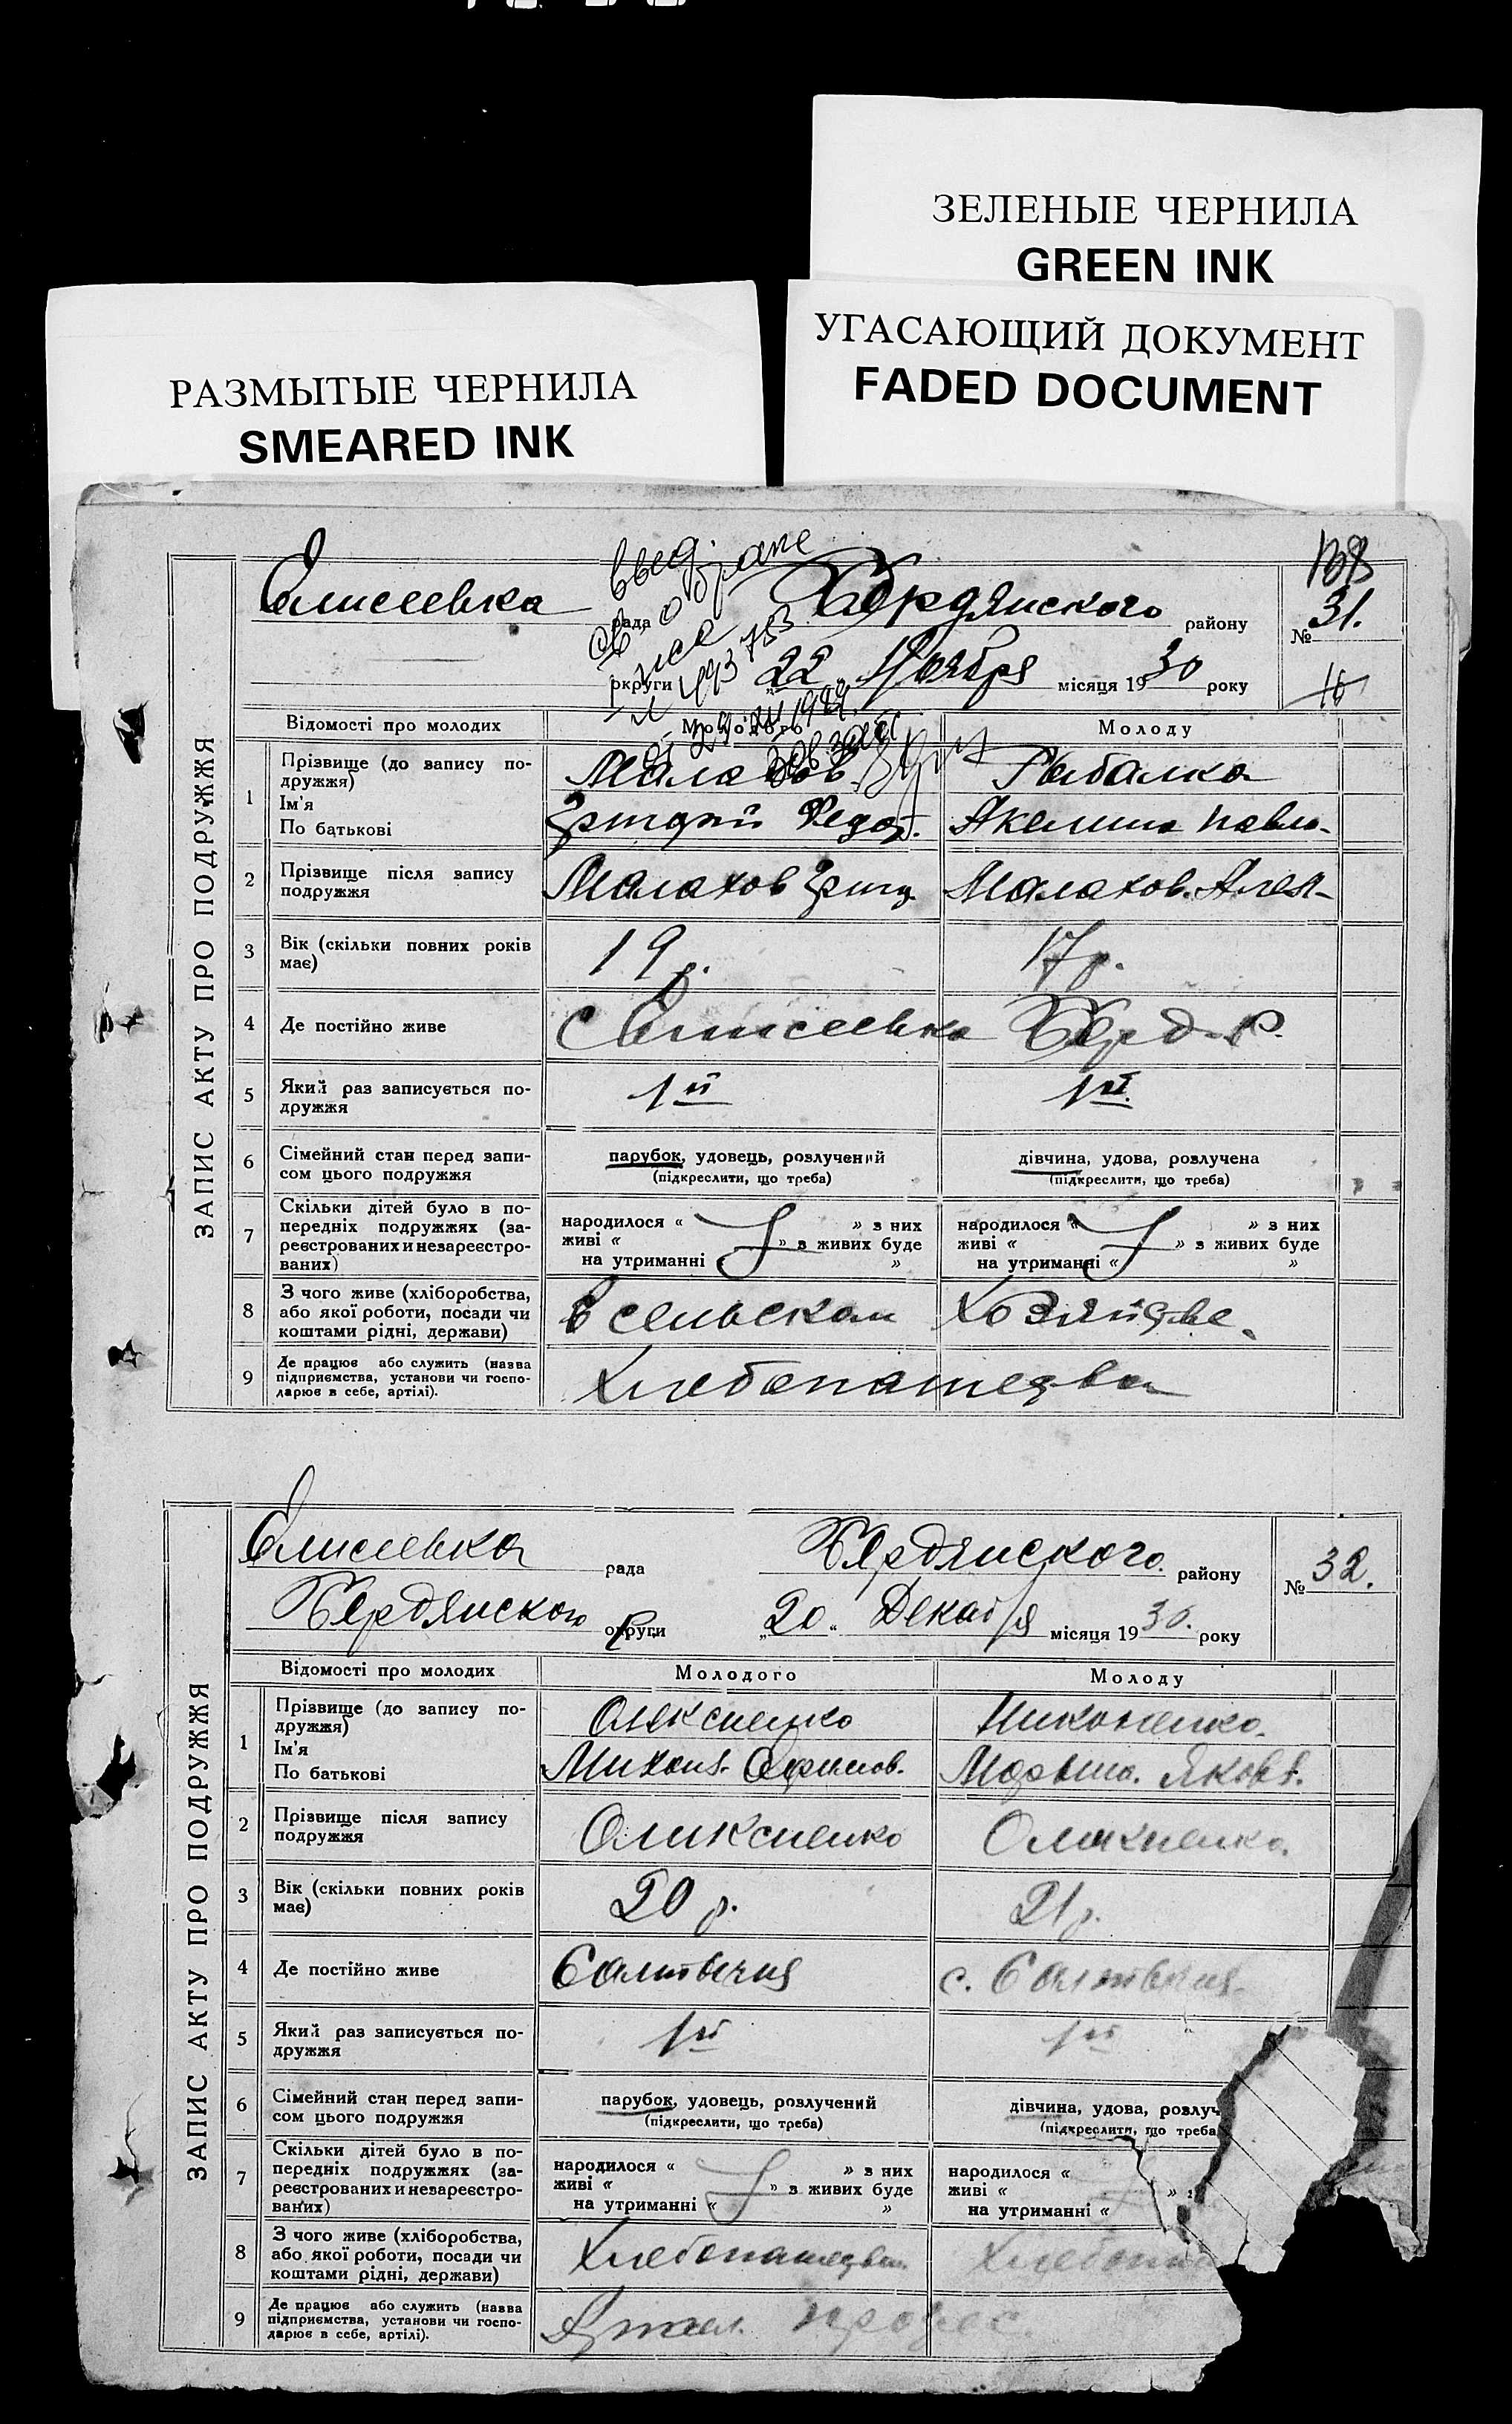 ЗЕЛЕНЫЕ ЧЕРНИЛА
GREEN INK
УГАСАЮЩИЙ ДОКУМЕНТ
FADED DOCUMENT
РАЗМЫТЫЕ ЧЕРНИЛА
SMEARED INK
ЗАПИС АКТУ ПРО ПОДРУЖЖЯ
Елисеевка рада Бердянского району № 31.
округи „22„ Ноября місяця 1930 року
Відомості про молодих Молодого Молоду
1 Прізвище (до запису по-
дружжя) Малахов Рыбалка
Ім'я
По батькові Григорий Федот. Акелина Павло-
2 Прізвище після запису
подружжя Малахов Григ Малахов.
3 Вік (скільки повних років
має) 19 р. 17 р.
4 Де постійно живе с Елисеевка Берд-Р.
5 Який раз записується по-
дружжя 1й 1й.
6 Сімейний стан перед запи-
сом цього подружжя
парубок, удовець, розлучений дівчина, удова, розлучена
(підкреслити, що треба) (підкреслити, що треба)
7 Скільки дітей було в по-
передніх подружжях (за-
реєстрованих и незареєстро-
ваних)
народилося « » з них народилося « » з них
живі « » з живих буде живі « » з живих буде
на утриманні « » на утриманні « »
8 З чого живе (хліборобства,
або якої роботи, посади чи
коштами рідні, держави) в сельском Хозяйстве.
9 Де працює або служить (назва
підприємства, установи чи госпо-
дарює в себе, артілі). Хлебопашества
ЗАПИС АКТУ ПРО ПОДРУЖЖЯ
Елисеевка рада Бердянского. району № 32.
Бердянского округи „20„ Декабря місяця 1930. року
Відомості про молодих Молодого Молоду
1 Прізвище (до запису по-
дружжя) Олексиенко Никоненко.
Ім'я
По батькові Михаил. Марына. Яковл.
2 Прізвище після запису
подружжя Оликсиенко
3 Вік (скільки повних років
має) 20 р. 21 р.
4 Де постійно живе Салтычия с. Салтычия.
5 Який раз записується по-
дружжя 1й 1й
6 Сімейний стан перед запи-
сом цього подружжя
парубок, удовець, розлучений дівчина, удова, розлуч
(підкреслити, що треба) (підкреслити, що треба
7 Скільки дітей було в по-
передніх подружжях (за-
реєстрованих и незареєстро-
ваних)
народилося « » з них народилося «
живі « » з живих буде живі « »
на утриманні « » на утриманні «
8 З чого живе (хліборобства,
або якої роботи, посади чи
коштами рідні, держави) Хлебопашества
9 Де працює або служить (назва
підприємства, установи чи госпо-
дарює в себе, артілі). Артел.